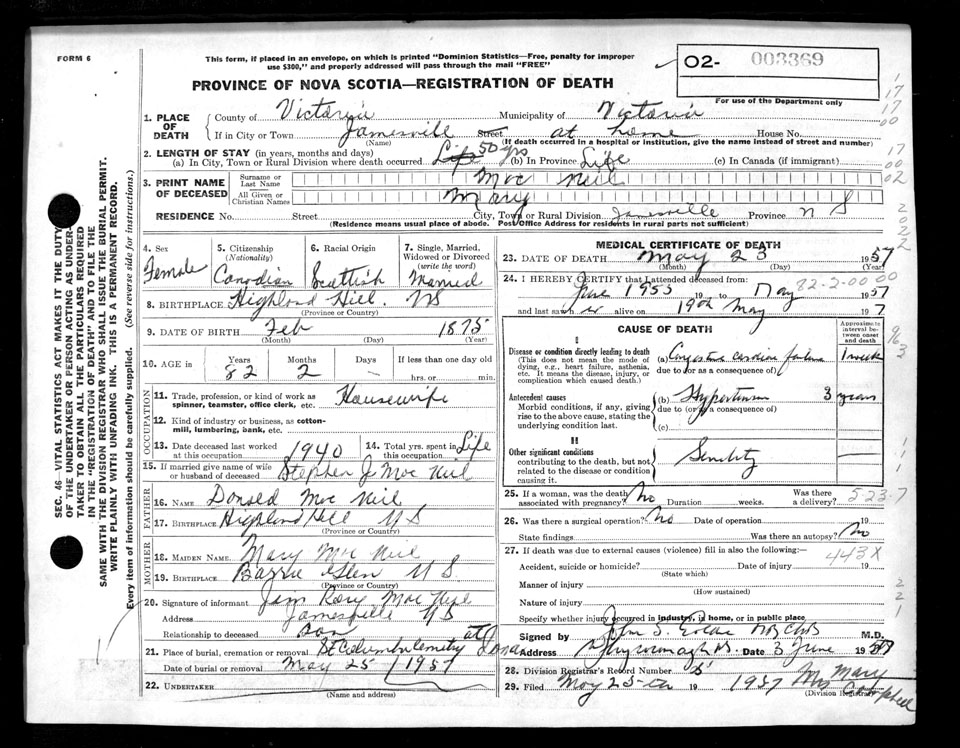 FORM 6
This form, if placed in an envelope, on which is printed "Dominion Statistics—Free, penalty for improper
use $300," and properly addressed will pass through the mail "FREE"
PROVINCE OF NOVA SCOTIA—REGISTRATION OF DEATH
O2- 003369
For use of the Department only
1. PLACE OF DEATH
County of Victoria Municipality of Victoria
If in City or Town Jamesville Street at home House No.
(Name) (If death occurred in a hospital or institution, give the name instead of street and number)
2. LENGTH OF STAY (in years, months and days)
(a) In City, Town or Rural Division where death occurred Life 50 yrs (b) In Province Life (c) In Canada (if immigrant)
3. PRINT NAME OF DECEASED
Surname or Last Name Mac Neil
All Given or Christian Names Mary
RESIDENCE No. Street City, Town or Rural Division Jamesville Province N S
(Residence means usual place of abode. Post Office Address for residents in rural parts not sufficient)
4. Sex Female
5. Citizenship (Nationality) Canadian
6. Racial Origin Scottish
7. Single, Married, Widowed or Divorced (write the word) Married
8. BIRTHPLACE Highland Hill NS
(Province or Country)
9. DATE OF BIRTH Feb 1875
(Month) (Day) (Year)
10. AGE Years 82 Months 2 Days - If less than one day old
hrs. or min.
OCCUPATION
11. Trade, profession, or kind of work as spinner, teamster, office clerk, etc. Housewife
12. Kind of industry or business, as cotton-mill, lumbering, bank, etc.
13. Date deceased last worked at this occupation 1940
14. Total yrs. spent in this occupation Life
15. If married give name of wife or husband of deceased Stephen J Mac Neil
FATHER
16. NAME Donald Mac Neil
17. BIRTHPLACE Highland Hill N S
(Province or Country)
MOTHER
18. MAIDEN NAME Mary Mac Neil
19. BIRTHPLACE Barra Glen N S.
(Province or Country)
20. Signature of informant Jam Rory Mac Neil
Address Jamesville N S
Relationship to deceased son
21. Place of burial, cremation or removal St Columba Cemetery at Iona
Date of burial or removal May 25 1957
22. UNDERTAKER
(Name and address)
MEDICAL CERTIFICATE OF DEATH
23. DATE OF DEATH May 23 1957
(Month) (Day) (Year)
24. I HEREBY CERTIFY that I attended deceased from:
June 1955 19 to May 1957
82-2-00 00
and last saw er alive on 19th May 19 7
CAUSE OF DEATH
Approximate interval between onset and death
I
Disease or condition directly leading to death
(This does not mean the mode of dying, e.g., heart failure, asthenia, etc. It means the disease, injury, or complication which caused death.)
(a) Congestive cardiac failure 1 week
due to (or as a consequence of)
Antecedent causes
Morbid conditions, if any, giving rise to the above cause, stating the underlying condition last.
(b) Hypertension 3 years
due to (or as a consequence of)
(c)
II
Other significant conditions
contributing to the death, but not related to the disease or condition causing it.
Senility
25. If a woman, was the death associated with pregnancy? No Duration weeks. Was there a delivery?
5-23-7
26. Was there a surgical operation? No Date of operation 19
State findings Was there an autopsy? No
27. If death was due to external causes (violence) fill in also the following:—
443X
Accident, suicide or homicide? Date of injury 19
(State which)
Manner of injury
(How sustained)
Nature of injury
Specify whether injury occurred in industry, in home, or in public place
Signed by John S. MB ChB M.D.
Address Date 3 June 1957
28. Division Registrar's Record Number 5
29. Filed May 25th 19 1957 Mrs Mary Campbell
(Division Registrar)
SEC. 46—VITAL STATISTICS ACT MAKES IT THE DUTY
OF THE UNDERTAKER OR PERSON ACTING AS UNDER-
TAKER TO OBTAIN ALL THE PARTICULARS REQUIRED
IN THE "REGISTRATION OF DEATH" AND TO FILE THE
SAME WITH THE DIVISION REGISTRAR WHO SHALL ISSUE THE BURIAL PERMIT.
WRITE PLAINLY WITH UNFADING INK. THIS IS A PERMANENT RECORD.
Every item of information should be carefully supplied. (See reverse side for instructions.)